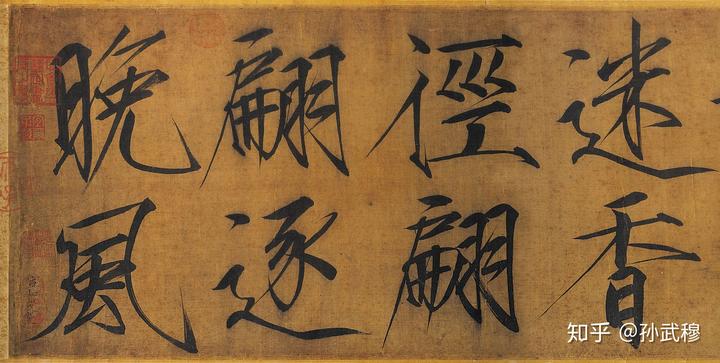 迷香
徑翩
翩逐
晚風
知乎 @孙武穆